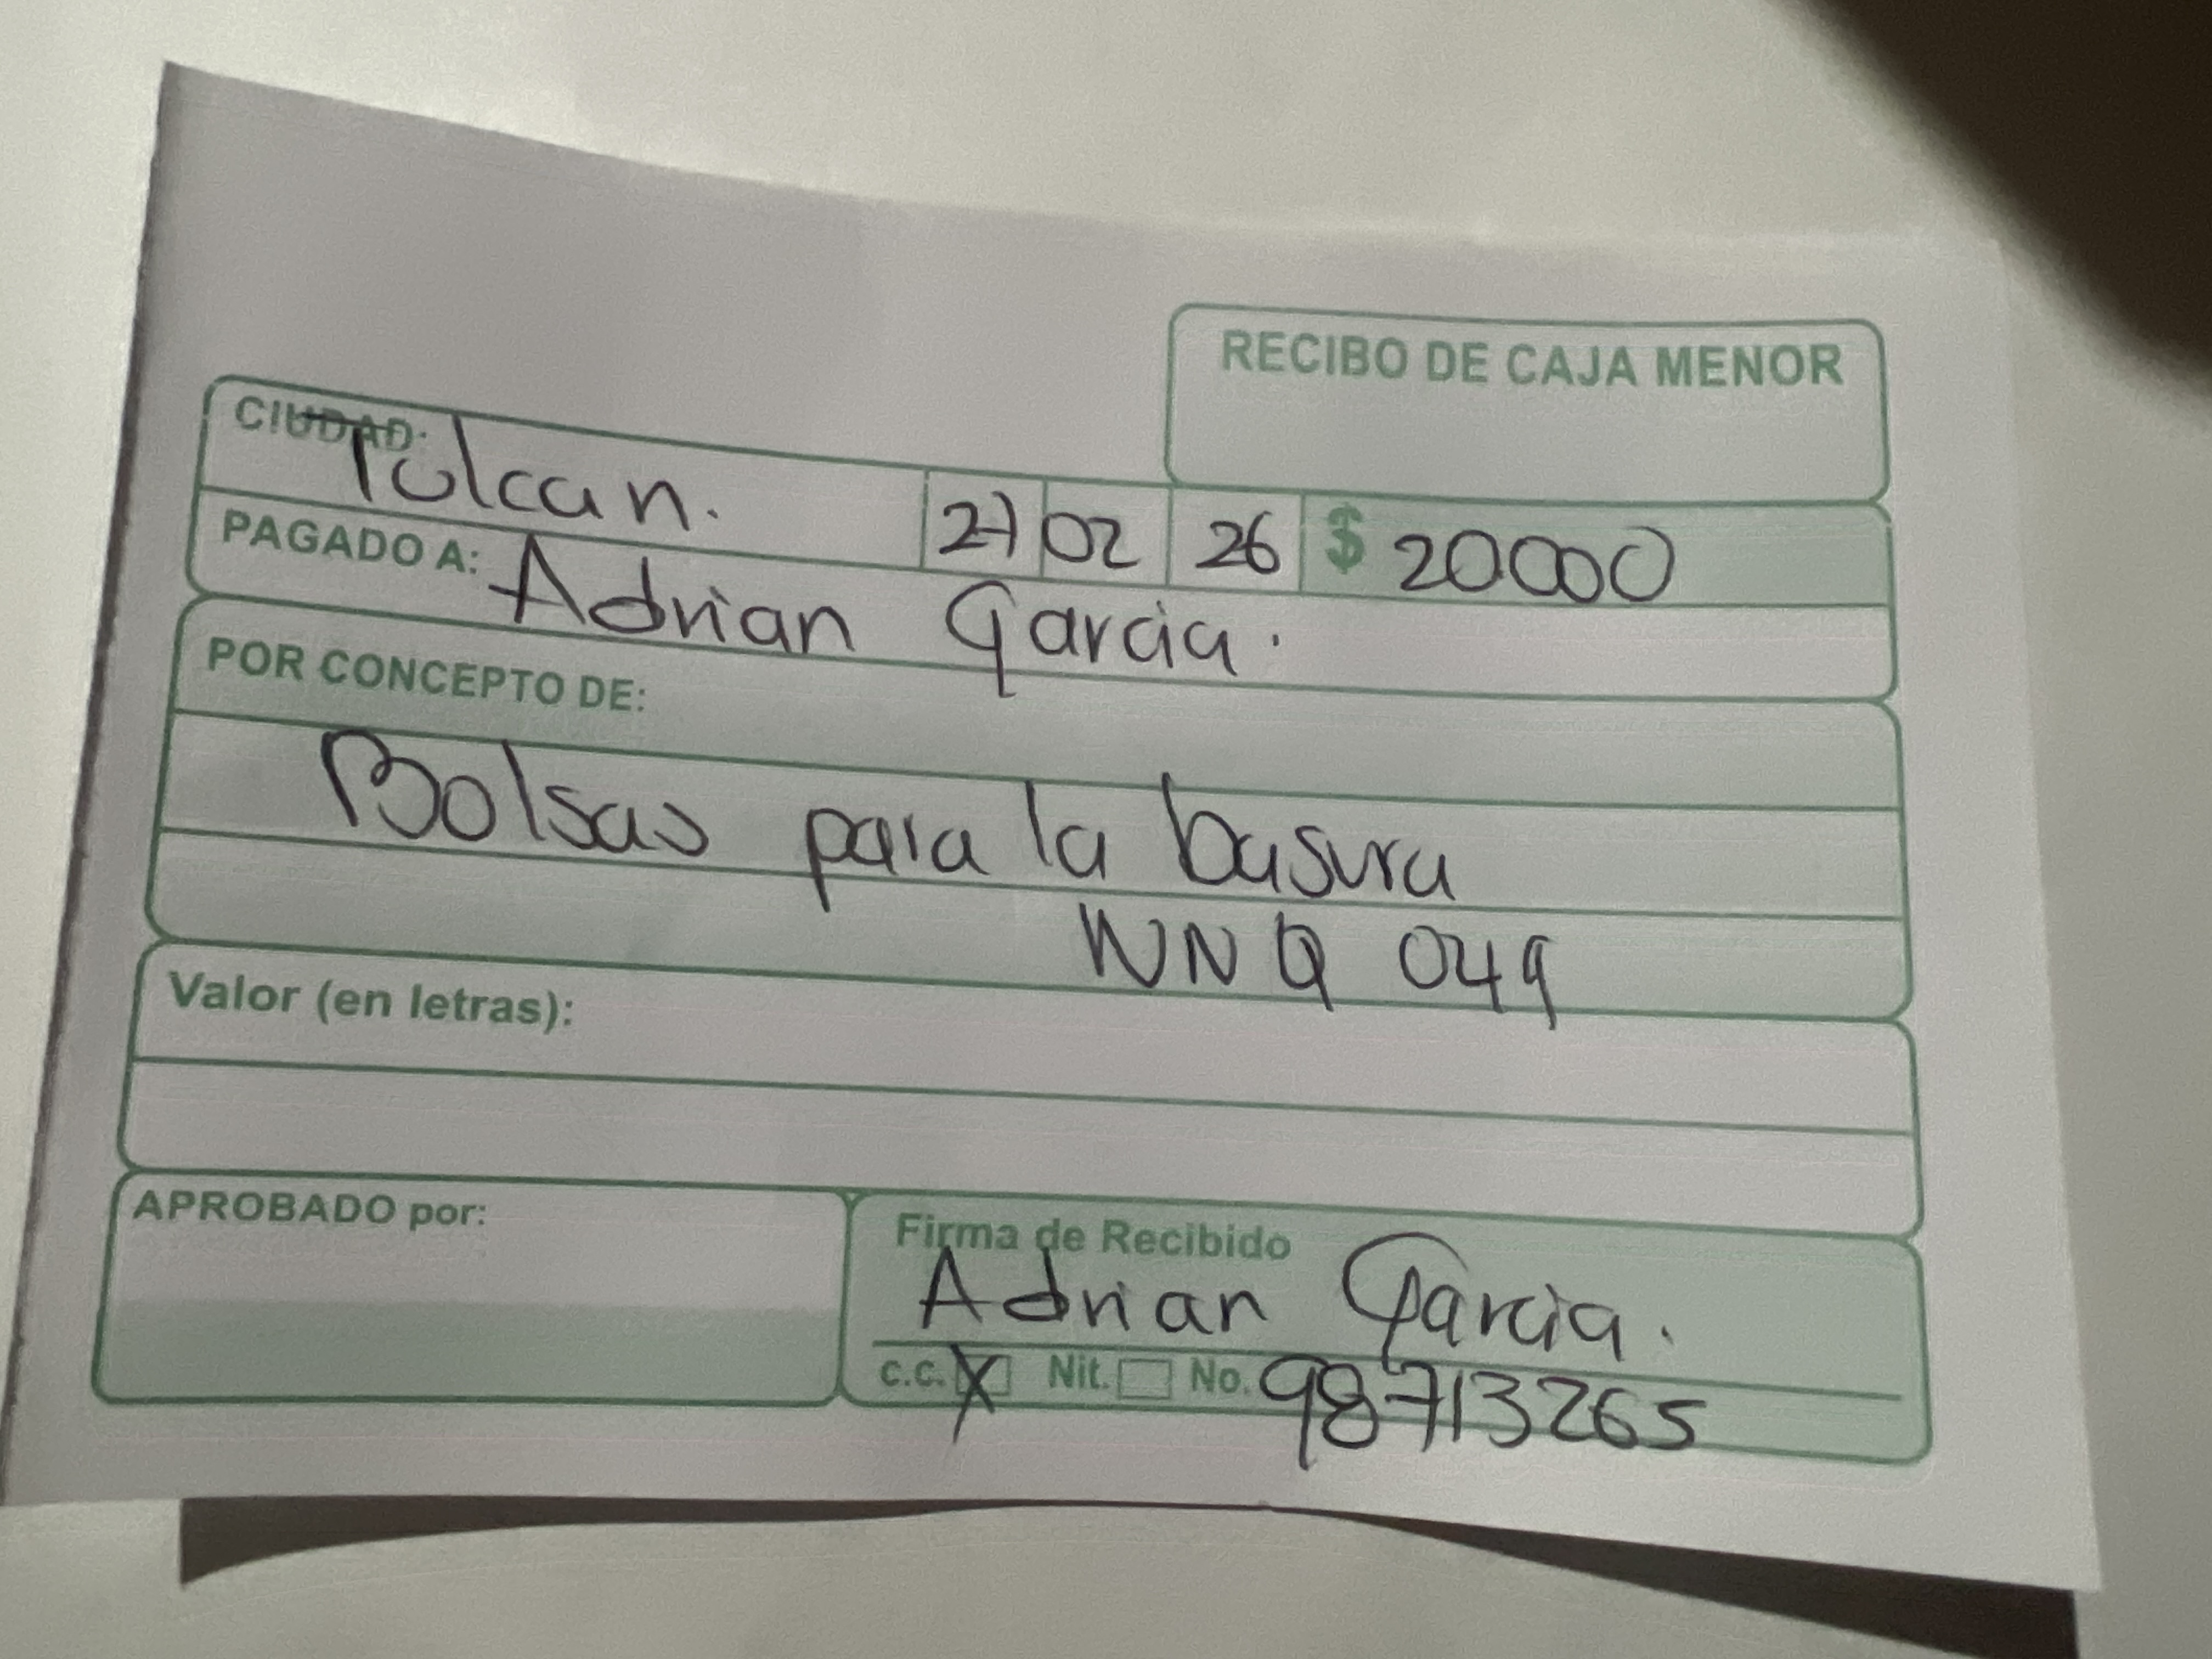 RECIBO DE CAJA MENOR
CIUDAD: Tulcan. 27 02 26 $ 20000
PAGADO A: Adrian Garcia.
POR CONCEPTO DE:
Bolsas para la basura
WNQ 049
Valor (en letras):
APROBADO por:
Firma de Recibido
Adrian Garcia.
c.c. X Nit. No. 98713265